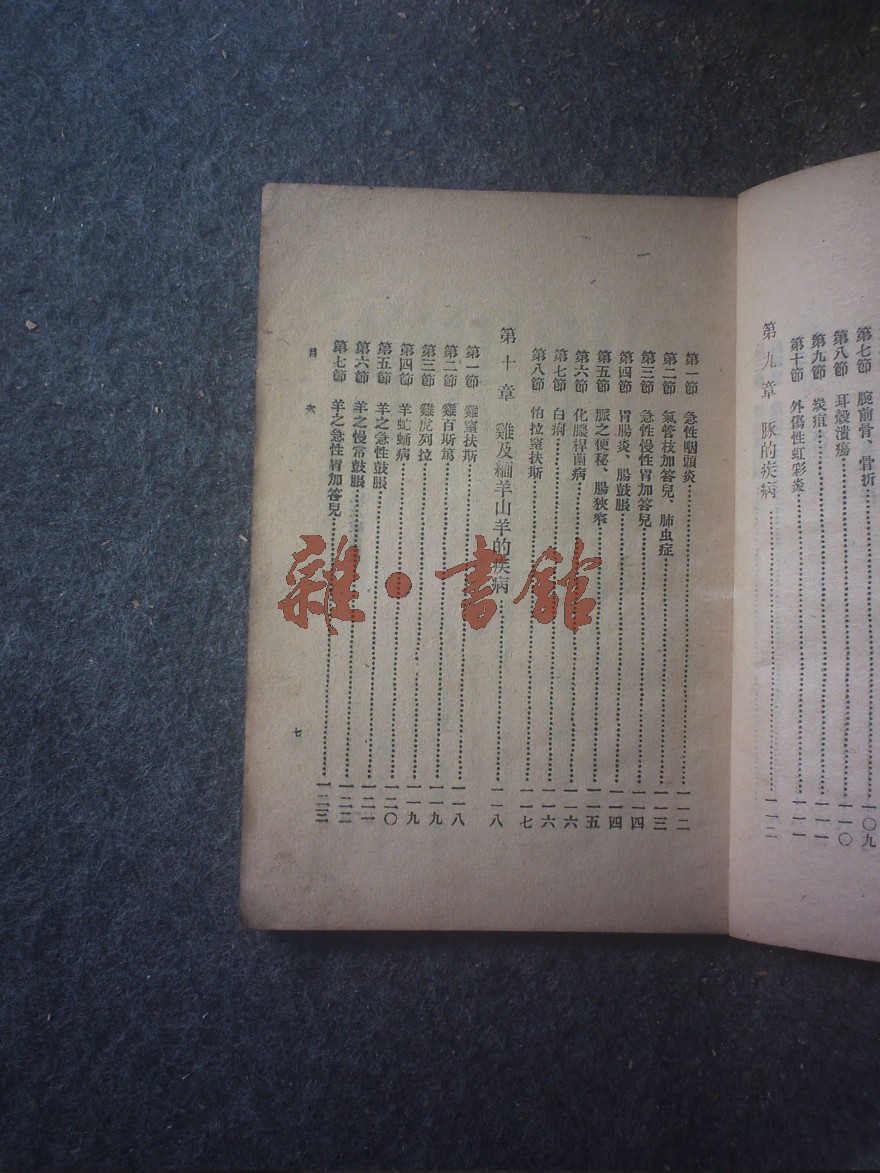 第七節 腕前骨、骨折……一〇九
第八節 耳殼潰瘍……一一〇
第九節 炭疽……一一一
第十節 外傷性虹彩炎……一一一
第九章 豚的疾病……一一二
第一節 急性咽頭炎……一一二
第二節 氣管枝加答兒、肺虫症……一一三
第三節 急性慢性胃加答兒……一一四
第四節 胃腸炎、腸鼓脹……一一四
第五節 豚之便秘、腸狹窄……一一五
第六節 化膿桿菌病……一一六
第七節 白痢……一一六
第八節 怕拉窒扶斯……一一七
第十章 雞及緬羊山羊的疾病……一一八
第一節 雞窒扶斯……一一八
第二節 雞百斯篤……一一九
第三節 雞虎列拉……一一九
第四節 羊蛇蛹病……一二〇
第五節 羊之急性鼓脹……一二一
第六節 羊之慢常鼓脹……一二二
第七節 羊之急性胃加答兒……一二三
目次
七
雜·書館